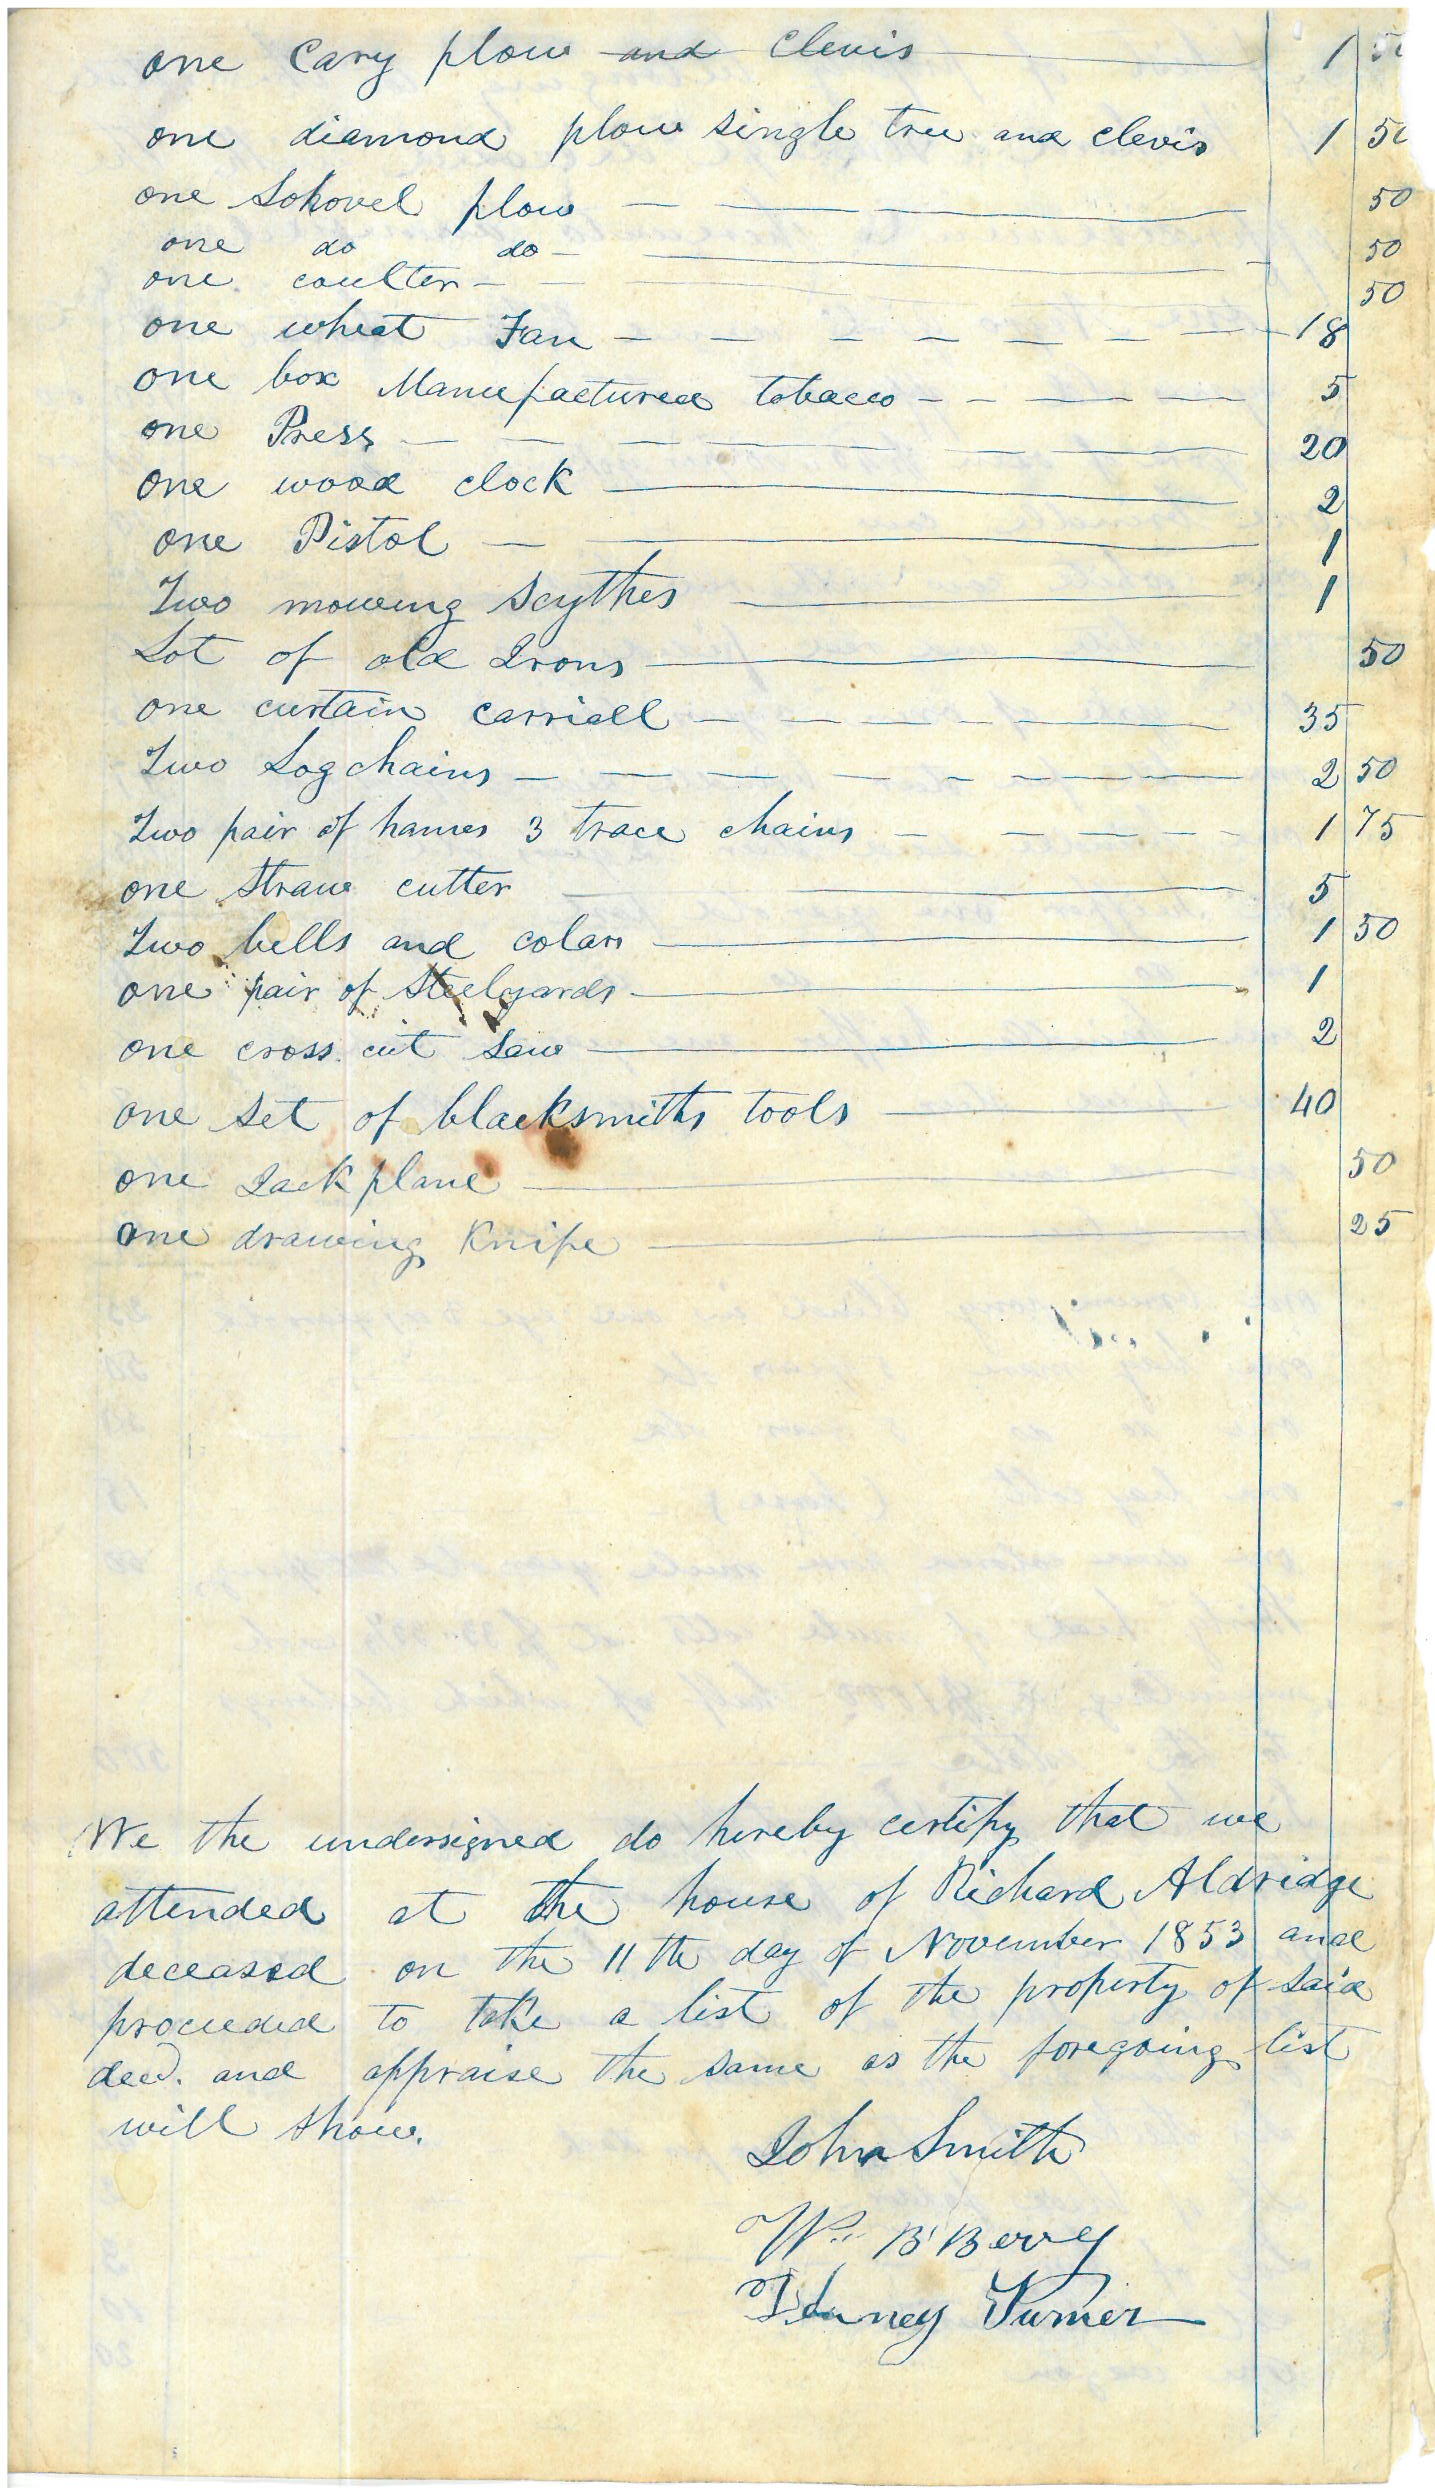 one Cary plow and Clevis 1 50
one diamond plow single tree and clevis 1 50
one Sohovel plow 50
one do do 50
one coulter 50
one wheat Fan 18
one box Manufactured tobacco 5
one Press 20
one wood clock 2
one Pistol 1
Two mowing Scythes 1
Lot of old Irons 50
one curtain carriall 35
Two Log chains 2 50
Two pair of hames 3 trace chains 1 75
one Straw cutter 5
Two bells and colars 1 50
one pair of Steelyards 1
one cross cut Saw 2
one set of blacksmiths tools 40
one Jack plane 50
one drawing Knife 25
We the undersigned do hereby certify that we
attended at the house of Richard Aldridge
deceased on the 11th day of November 1853 and
proceeded to take a list of the property of said
decd. and appraise the same as the foregoing list
will show.
John Smith
Wm B Berry
Turner